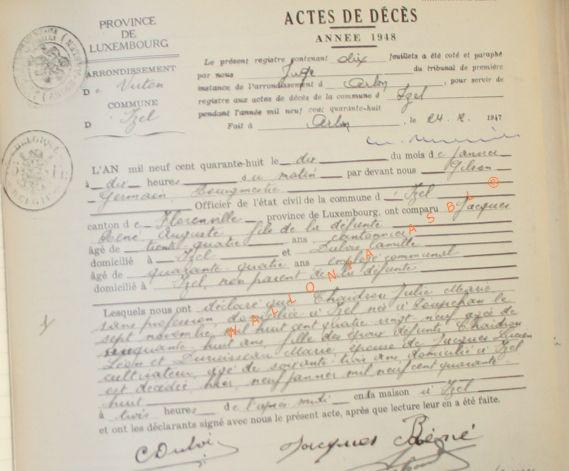 ACTES DE DÉCÈS
ANNÉE 1948
PROVINCE
DE
LUXEMBOURG
ARRONDISSEMENT
D e Virton
COMMUNE
D Izel
Le présent registre contenant dix feuillets a été coté et paraphé
par nous Juge du tribunal de première
instance de l'arrondissement d Arlon, pour servir de
registre aux actes de décès de la commune d Izel
pendant l'année mil neuf cent quarante-huit
Fait à Arlon, le 24.12. 1947
L'AN mil neuf cent quarante-huit le dix du mois de Janvier
à dix heures du matin par devant nous Gilson
Germain, Bourgmestre
Officier de l'état civil de la commune d' Izel
canton de Florenville province de Luxembourg, ont comparu Jacques
René Auguste fils de la défunte
âgé de trente-quatre ans cantonnier
domicilié à Izel et Dulois Camille
âgé de quarante-quatre ans employé communal
domicilié à Izel, non parent de la défunte
Lesquels nous ont déclaré que Chaidron Julie Marie
sans profession, domiciliée à Izel née à le
sept novembre mil huit cent quatre vingt neuf âgée de
cinquante-huit ans fille des époux défunts Chaidron
Léon et Marie, épouse de Jacques Lucien
cultivateur, âgé de soixante-trois ans, domicilié à Izel
est décédée hier, neuf janvier mil neuf cent quarante-
huit
à trois heures de l'après midi en la maison à Izel
et ont les déclarants signé avec nous le présent acte, après que lecture leur en a été faite.
Jacques René
WALLONIA ASBL ©